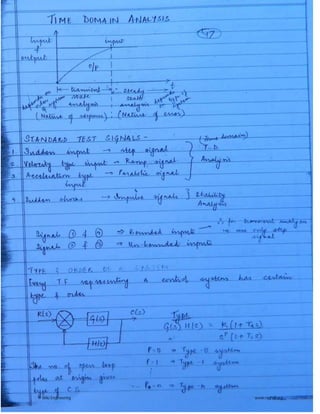 TIME DOMAIN ANALYSIS
47
Input
output
input
O/P
t
Transient
state
analysis
steady
state
analysis
(Nature of response) (Nature of error)
STANDARD TEST SIGNALS -
1. Sudden input → step signal
2. Velocity type input → Ramp signal
3. Acceleration type → Parabolic signal
input
(Time domain)
T.D.
Analysis
4. Sudden shocks → Impulse signals } Stability
Analysis
Signals ① & ④ → bounded inputs
Signals ② & ③ → Un-bounded inputs
∴ for transient analysis
we use only step
signal
TYPE & ORDER OF A SYSTEM
Every T.F. representing a control system has certain
type & order
R(s)
G(s)
C(s)
H(s)
Type
G(s) H(s) = K(1+Tas)
sP (1+T1s)
P=0 → Type-0 system
P=1 → Type-1 system
P=n → Type-n system
The no. of open loop
poles at origin gives
type of C.S.